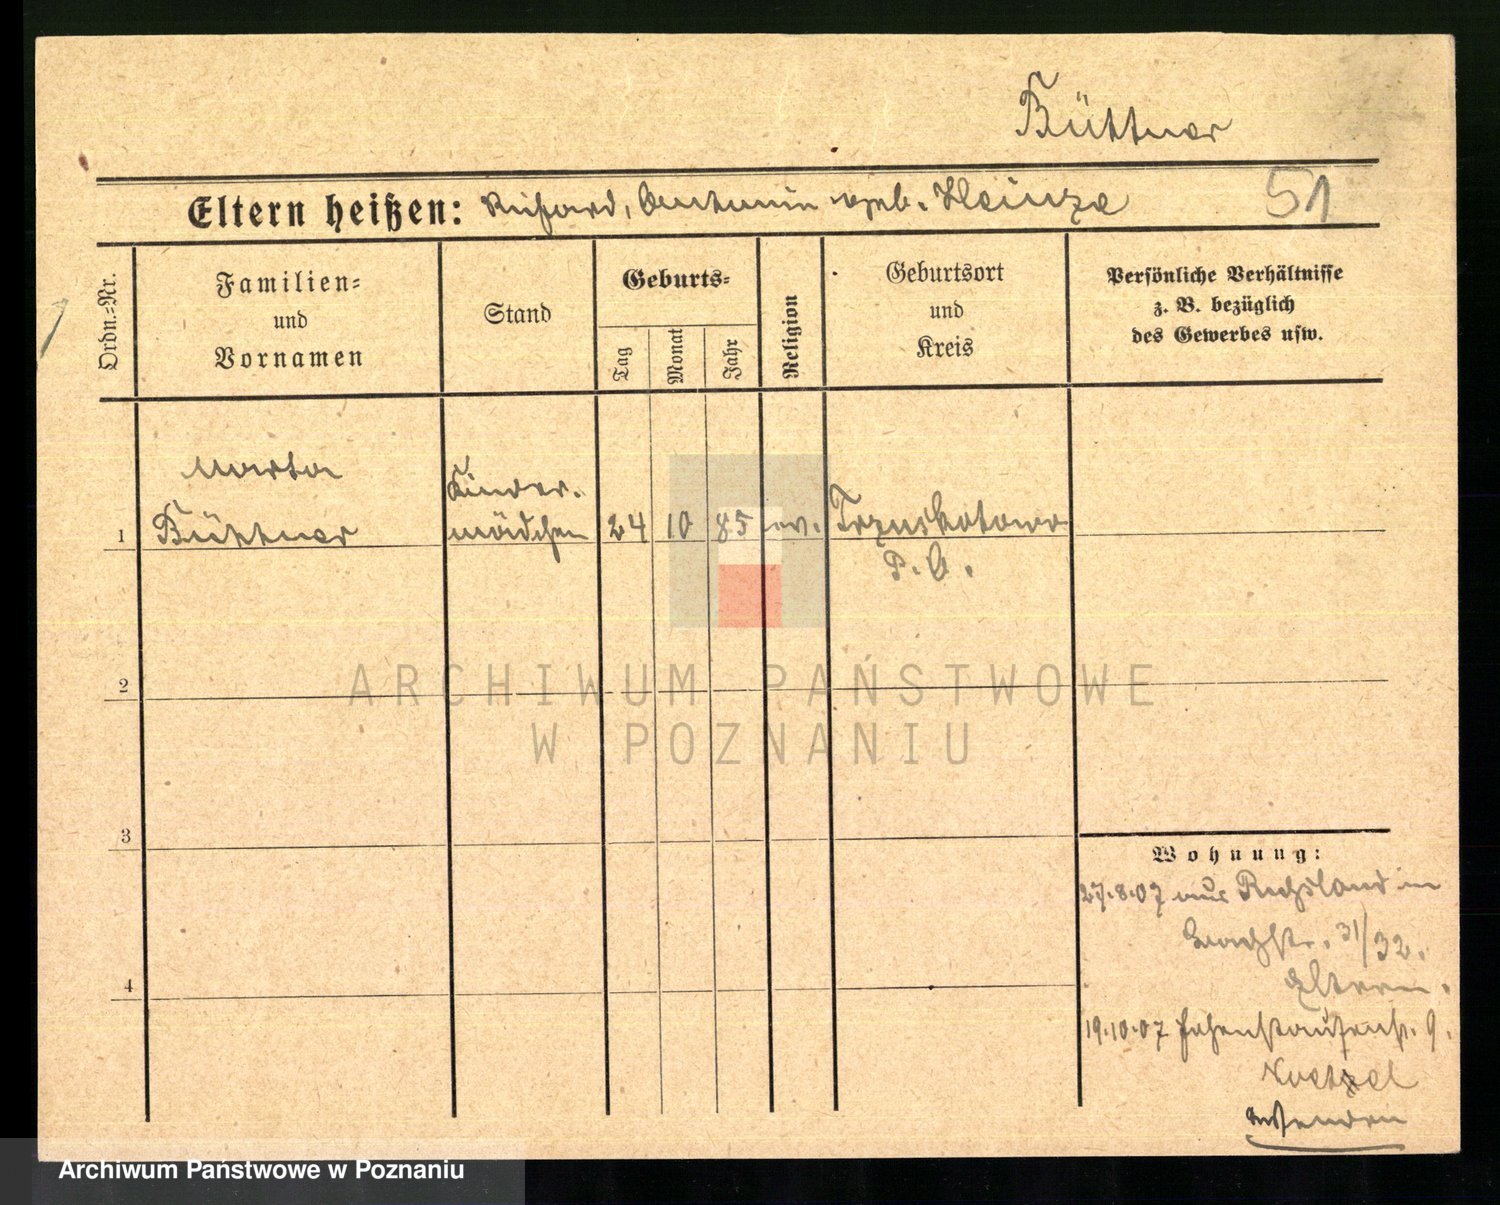 Büttner
Eltern heißen: Richard, geb. Heinze
51
Ordn.-Nr.
Familien-
und
Vornamen
Stand
Geburts-
Tag
Monat
Jahr
Religion
Geburtsort
und
Kreis
Persönliche Verhältnisse
z. B. bezüglich
des Gewerbes usw.
Marta
Kinder-
1 Büttner mädchen 24 10 85 ev. Trzuskotowo
P. O.
2
3
4
Wohnung:
27.8.07 aus Russland in
31/32.
Eltern.
19.10.07 Hohenstaufenstr. 9.
wenden
ARCHIWUM PAŃSTWOWE
W POZNANIU
Archiwum Państwowe w Poznaniu